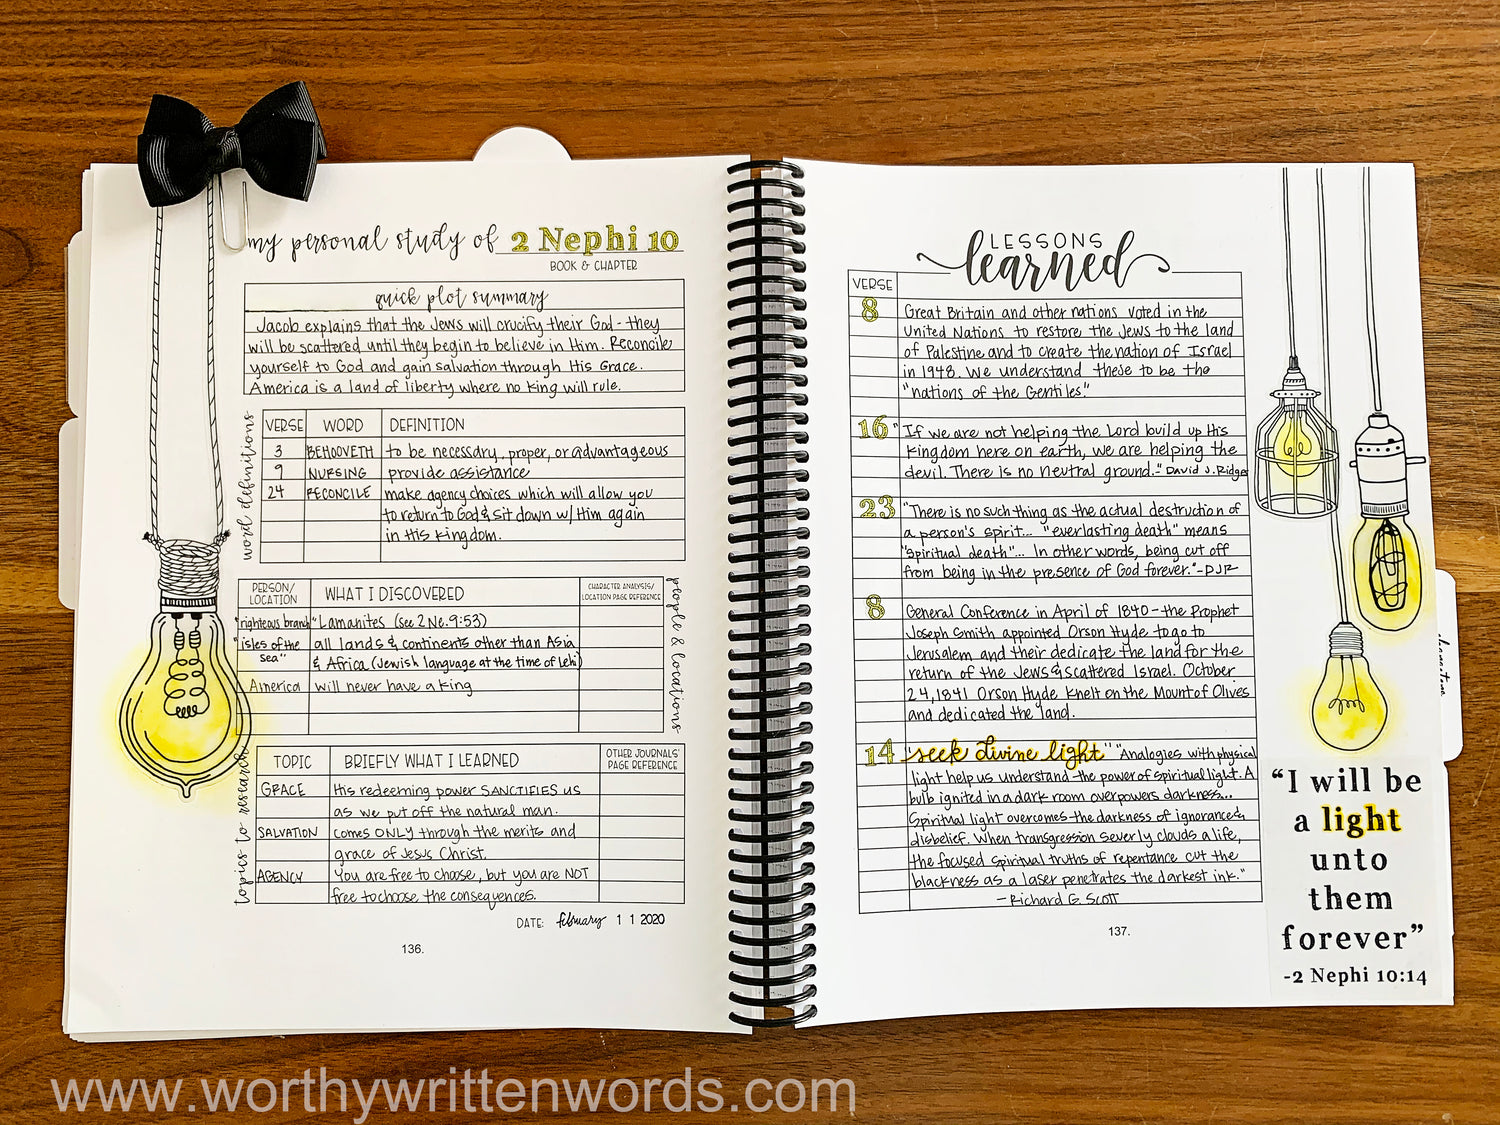 my personal study of 2 Nephi 10
BOOK & CHAPTER
quick plot summary
Jacob explains that the Jews will crucify their God - they
will be scattered until they begin to believe in Him. Reconcile
yourself to God and gain salvation through His Grace.
America is a land of liberty where no king will rule.
word definitions
VERSE WORD DEFINITION
3 BEHOOVETH to be necessary, proper, or advantageous
9 NURSING provide assistance
24 RECONCILE make agency choices which will allow you
to return to God & sit down w/ Him again
in His Kingdom.
people & locations
PERSON/ LOCATION WHAT I DISCOVERED CHARACTER ANALYSIS/ LOCATION PAGE REFERENCE
"righteous branch" Lamanites (see 2 Ne. 9:53)
"isles of the sea" all lands & continents other than Asia
& Africa (Jewish language at the time of Lehi)
America will never have a king
topics to research
TOPIC BRIEFLY WHAT I LEARNED OTHER JOURNALS' PAGE REFERENCE
GRACE His redeeming power SANCTIFIES us
as we put off the natural man.
SALVATION comes ONLY through the merits and
grace of Jesus Christ.
AGENCY You are free to choose, but you are NOT
free to choose the consequences.
DATE: february 11 2020
136.
LESSONS
learned
VERSE
8 Great Britain and other nations voted in the
United Nations to restore the Jews to the land
of Palestine and to create the nation of Israel
in 1948. We understand these to be the
"nations of the Gentiles."
16 "If we are not helping the Lord build up His
Kingdom here on earth, we are helping the
devil. There is no neutral ground." David J. Ridges
23 "There is no such thing as the actual destruction of
a person's spirit... "everlasting death" means
"spiritual death"... In other words, being cut off
from being in the presence of God forever." -DJR
8 General Conference in April of 1840 - the Prophet
Joseph Smith appointed Orson Hyde to go to
Jerusalem and their dedicate the land for the
return of the Jews & scattered Israel. October
24, 1841 Orson Hyde knelt on the Mount of Olives
and dedicated the land.
14 "seek divine light" "Analogies with physical
light help us understand the power of spiritual light. A
bulb ignited in a dark room overpowers darkness...
Spiritual light overcomes the darkness of ignorance &
disbelief. When transgression severly clouds a life,
the focused spiritual truths of repentance cut the
blackness as a laser penetrates the darkest ink."
- Richard G. Scott
137.
"I will be
a light
unto
them
forever"
-2 Nephi 10:14
www.worthywrittenwords.com